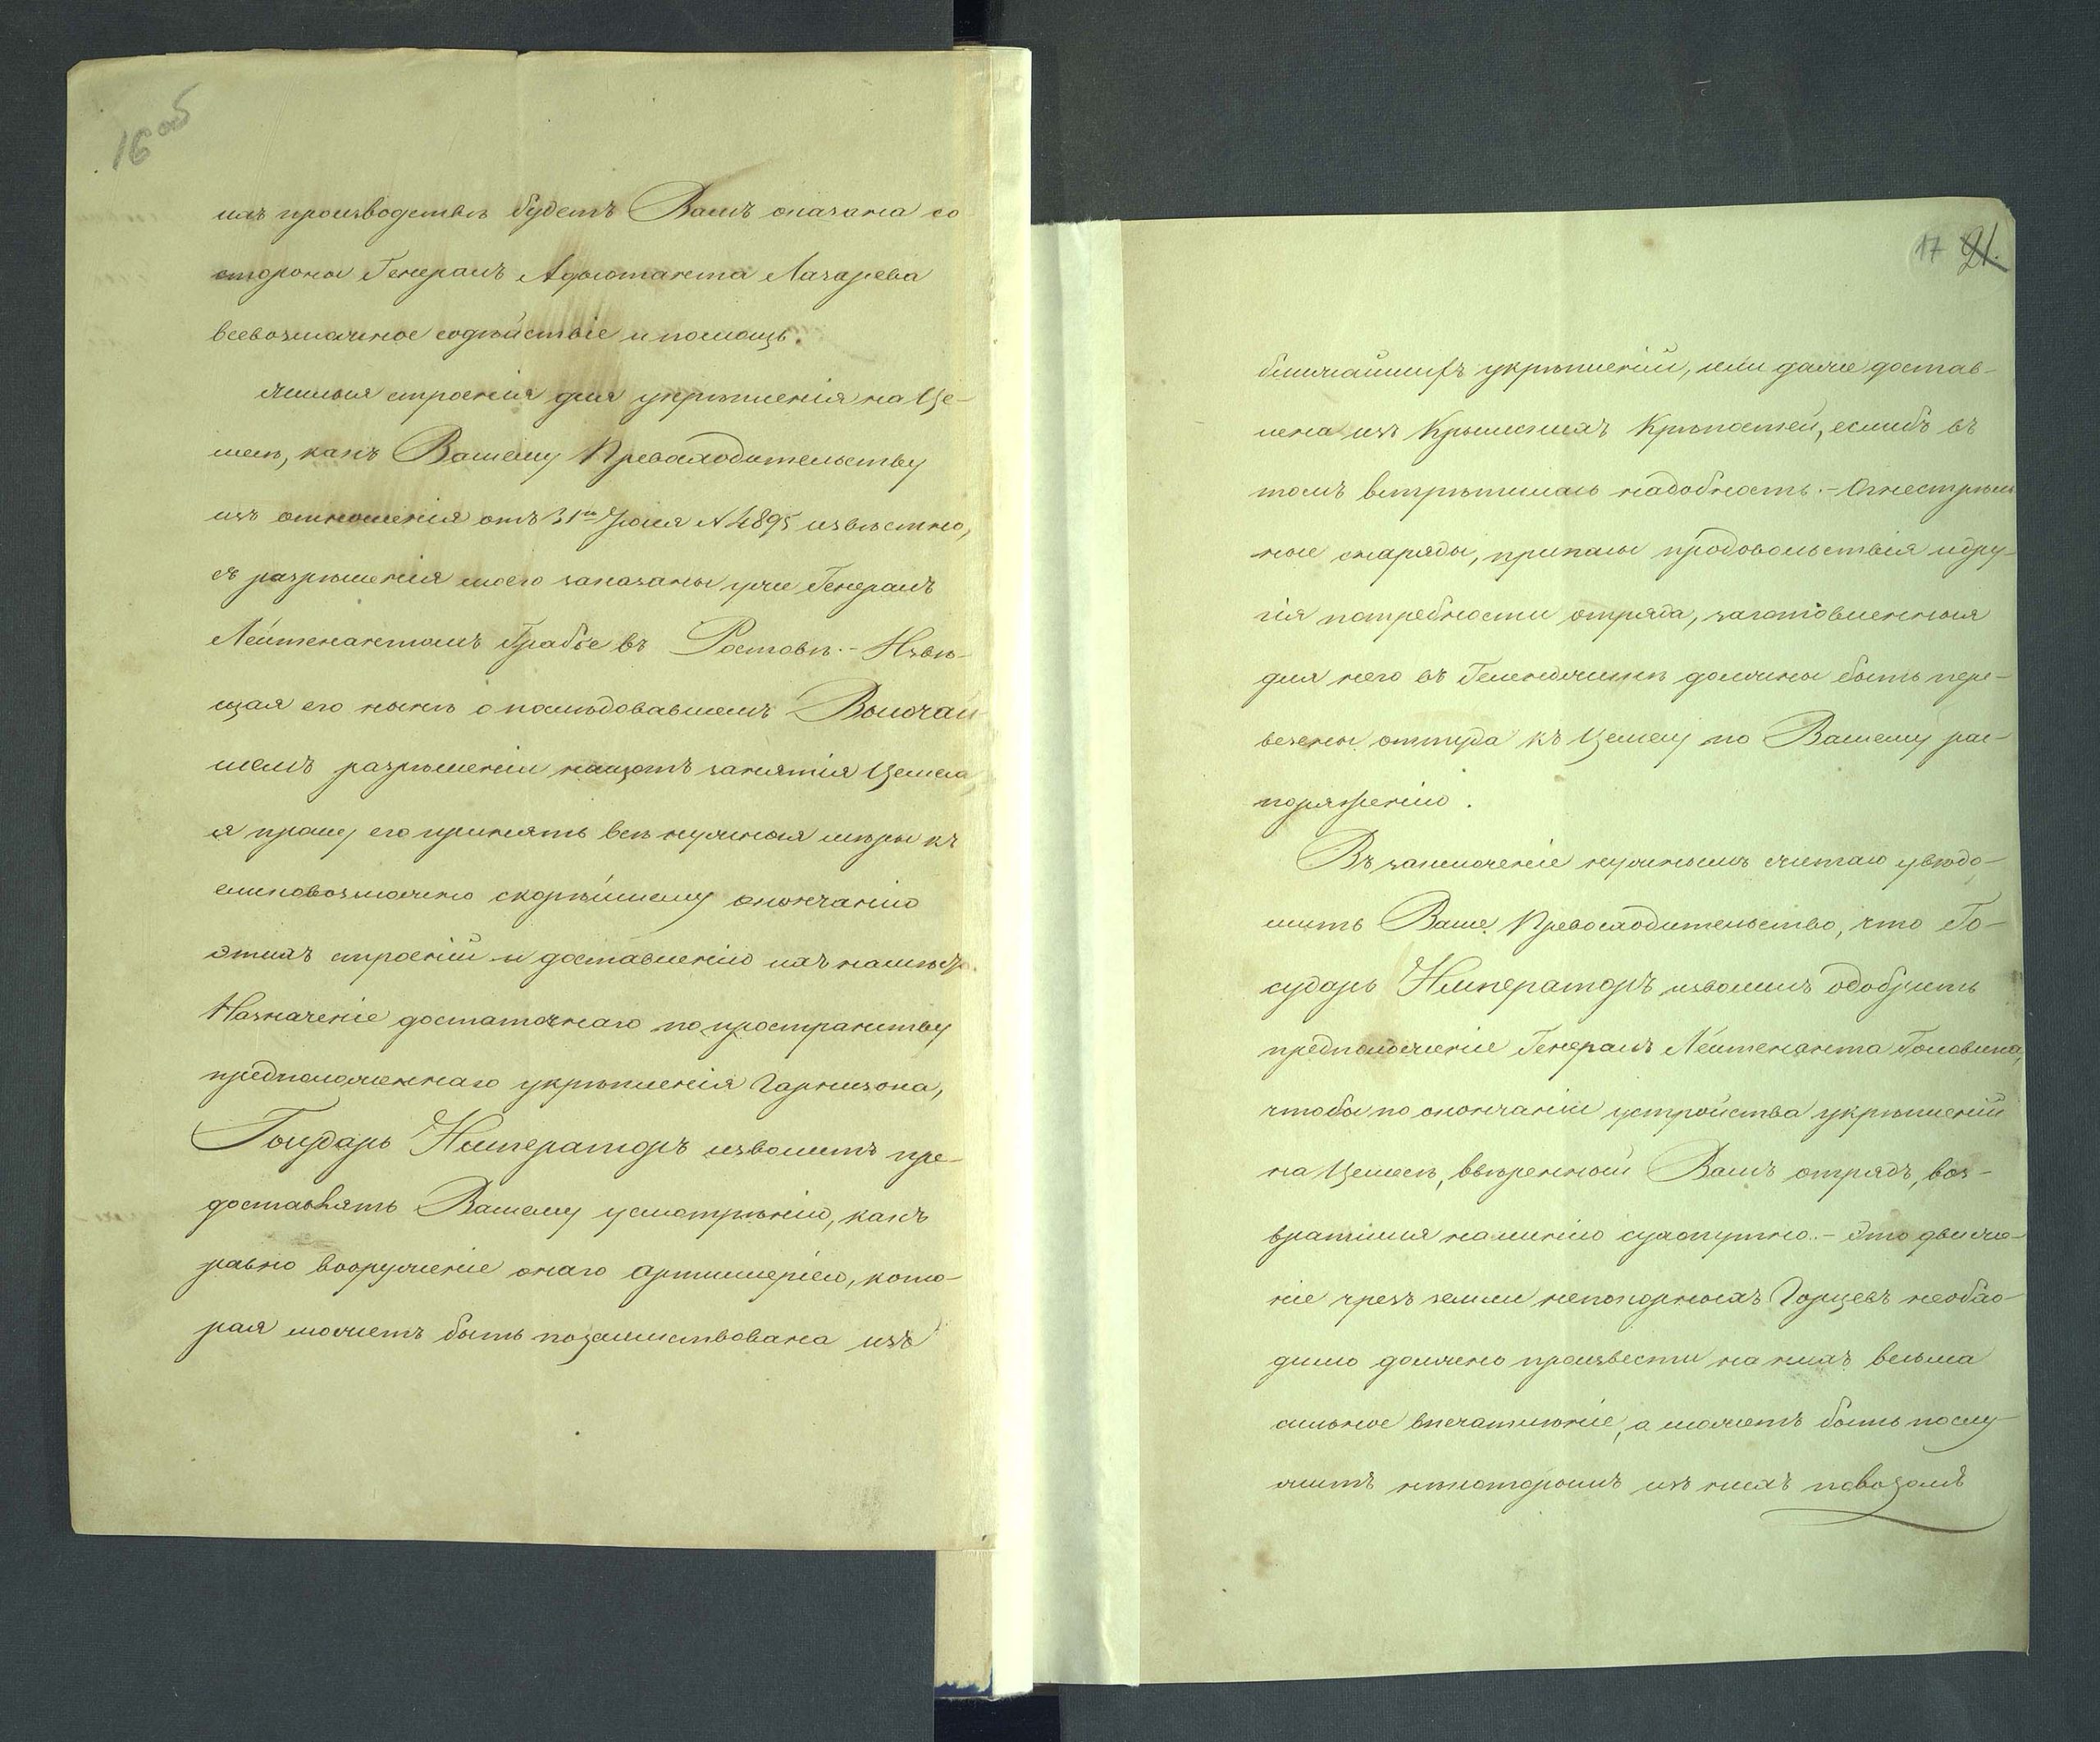 16 об
ихъ производствѣ будетъ Вамъ оказана со
стороны Генералъ Адъютанта Лазарева
всевозможное содѣйствіе и помощь.
Жилыя строенія для укрѣпленія на Це-
месѣ, какъ Вашему Превосходительству
изъ отношенія отъ 31го Іюля № 4895 извѣстно,
съ разрѣшенія моего заказаны уже Генералъ
Лейтенантомъ Граббе въ Ростовѣ. - Извѣ-
щая его нынѣ о послѣдовавшемъ Высочай-
шемъ разрѣшеніи насчетъ занятія Цемеса,
я прошу его принять всѣ нужныя мѣры къ
елико возможно скорѣйшему окончанію
этихъ строеній и доставленію ихъ на мѣсто.
Назначеніе достаточнаго по пространству
предположеннаго укрѣпленія Гарнизона,
Государь Императоръ изволитъ пре-
доставлять Вашему усмотрѣнію, какъ
равно вооруженіе онаго артиллеріею, кото-
рая можетъ быть позаимствована изъ
17 21.
ближайшихъ укрѣпленій, или даже достав-
лена изъ Крымскихъ Крѣпостей, еслибъ въ
томъ встрѣтилась надобность. - Огнестрѣль
ные снаряды, припасы продовольствія и дру-
гія потребности отряда, заготовленныя
для него въ Геленджикѣ должны быть пере-
везены оттуда къ Цемесу по Вашему рас-
поряженію.
Въ заключеніе нужнымъ считаю увѣдо-
мить Ваше Превосходительство, что Го-
сударь Императоръ изволилъ одобрить
предположеніе Генералъ Лейтенанта Головина,
чтобы по окончаніи устройства укрѣпленій
на Цемесѣ, ввѣренный Вамъ отрядъ, воз-
вратился на линію сухопутно. - Это движе-
ніе чрезъ земли непокорныхъ Горцевъ необхо-
димо должно произвести на нихъ весьма
сильное впечатлѣніе, а можетъ быть послу-
житъ нѣкоторымъ изъ нихъ поводомъ